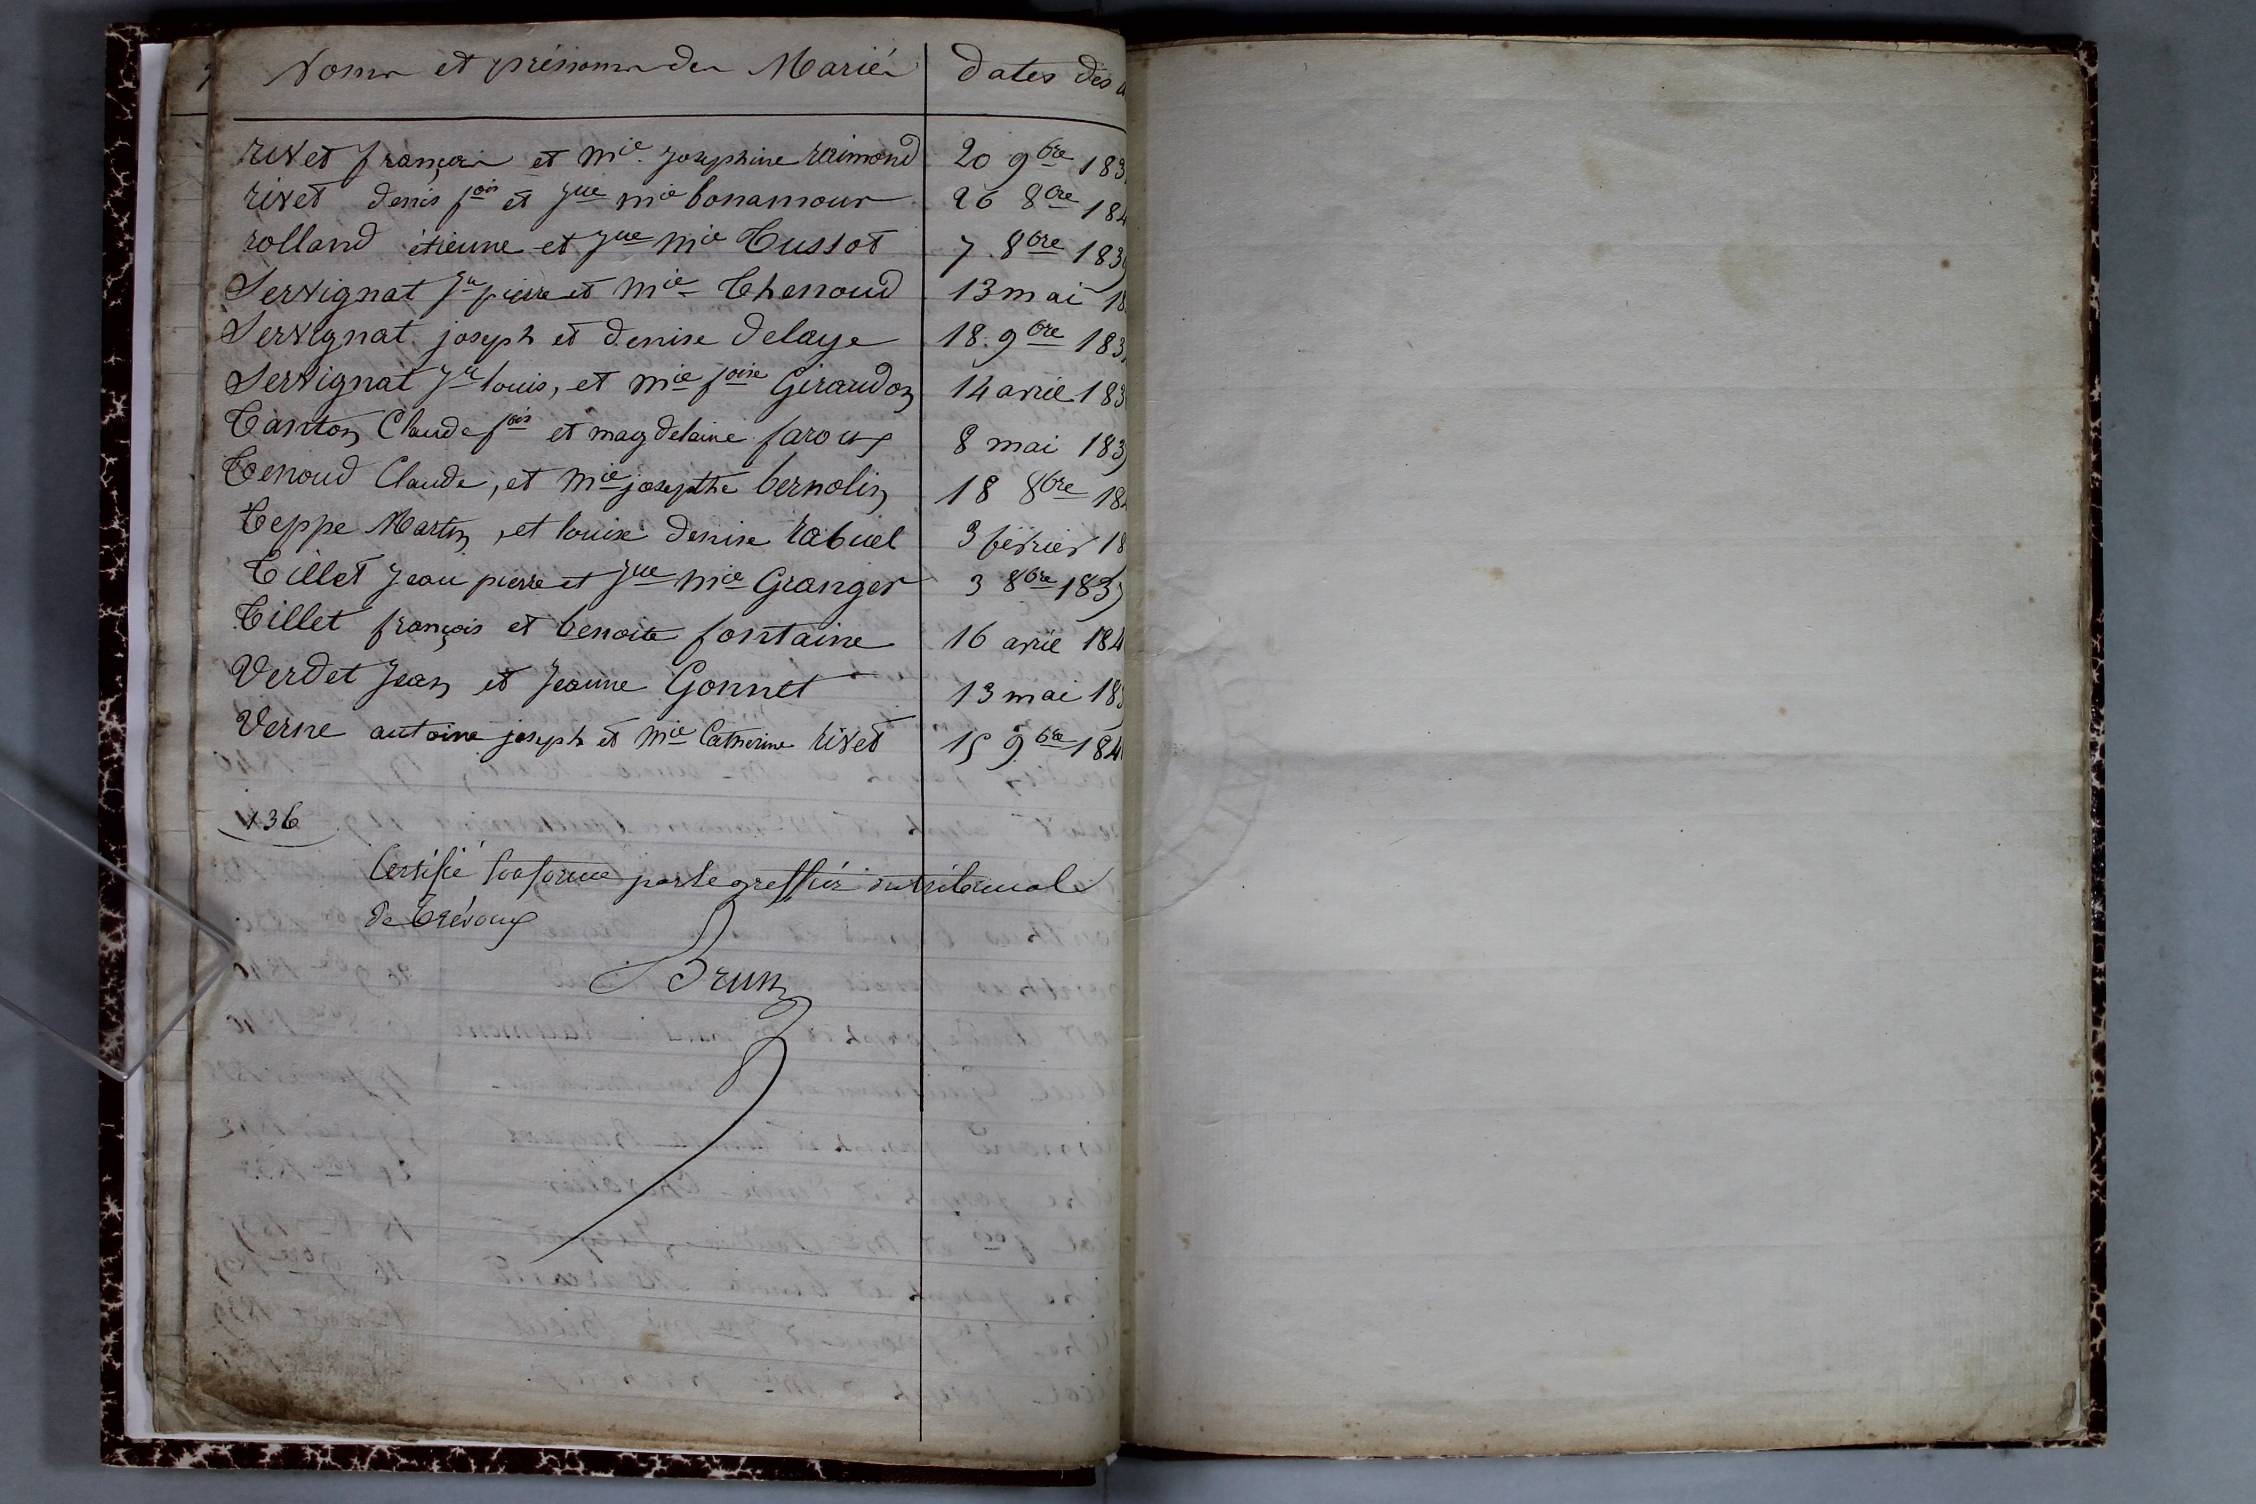 Noms et prénoms des Mariés dates des
rivet françois et mie josephine raimond 20 9bre 183
rivet denis fois et jne mie bonamour 26 8bre 184
rolland étienne et jne mie Tussot 7 8bre 1839
Servignat jn pierre et mie Thenoud 13 mai 18
Servignat joseph et denise delaye 18 9bre 183
Servignat jn louis, et mie foise Giraudon 14 avril 183
Tanton Claude fois et magdelaine faroux 8 mai 183
Tenoud Claude, et mie josepthe bernolin 18 8bre 18
Teppe Martin, et louise denise rabuel 3 février 18
Tillet jean pierre et jne mie Granger 3 8bre 183
Tillet françois et benoite fontaine 16 avril 184
Verdet jean et jeanne Gonnet 13 mai 183
Verne antoine joseph et mie Catherine rivet 15 9bre 184
136
Certifié conforme par le greffier du tribunal
de Trévoux
Brun